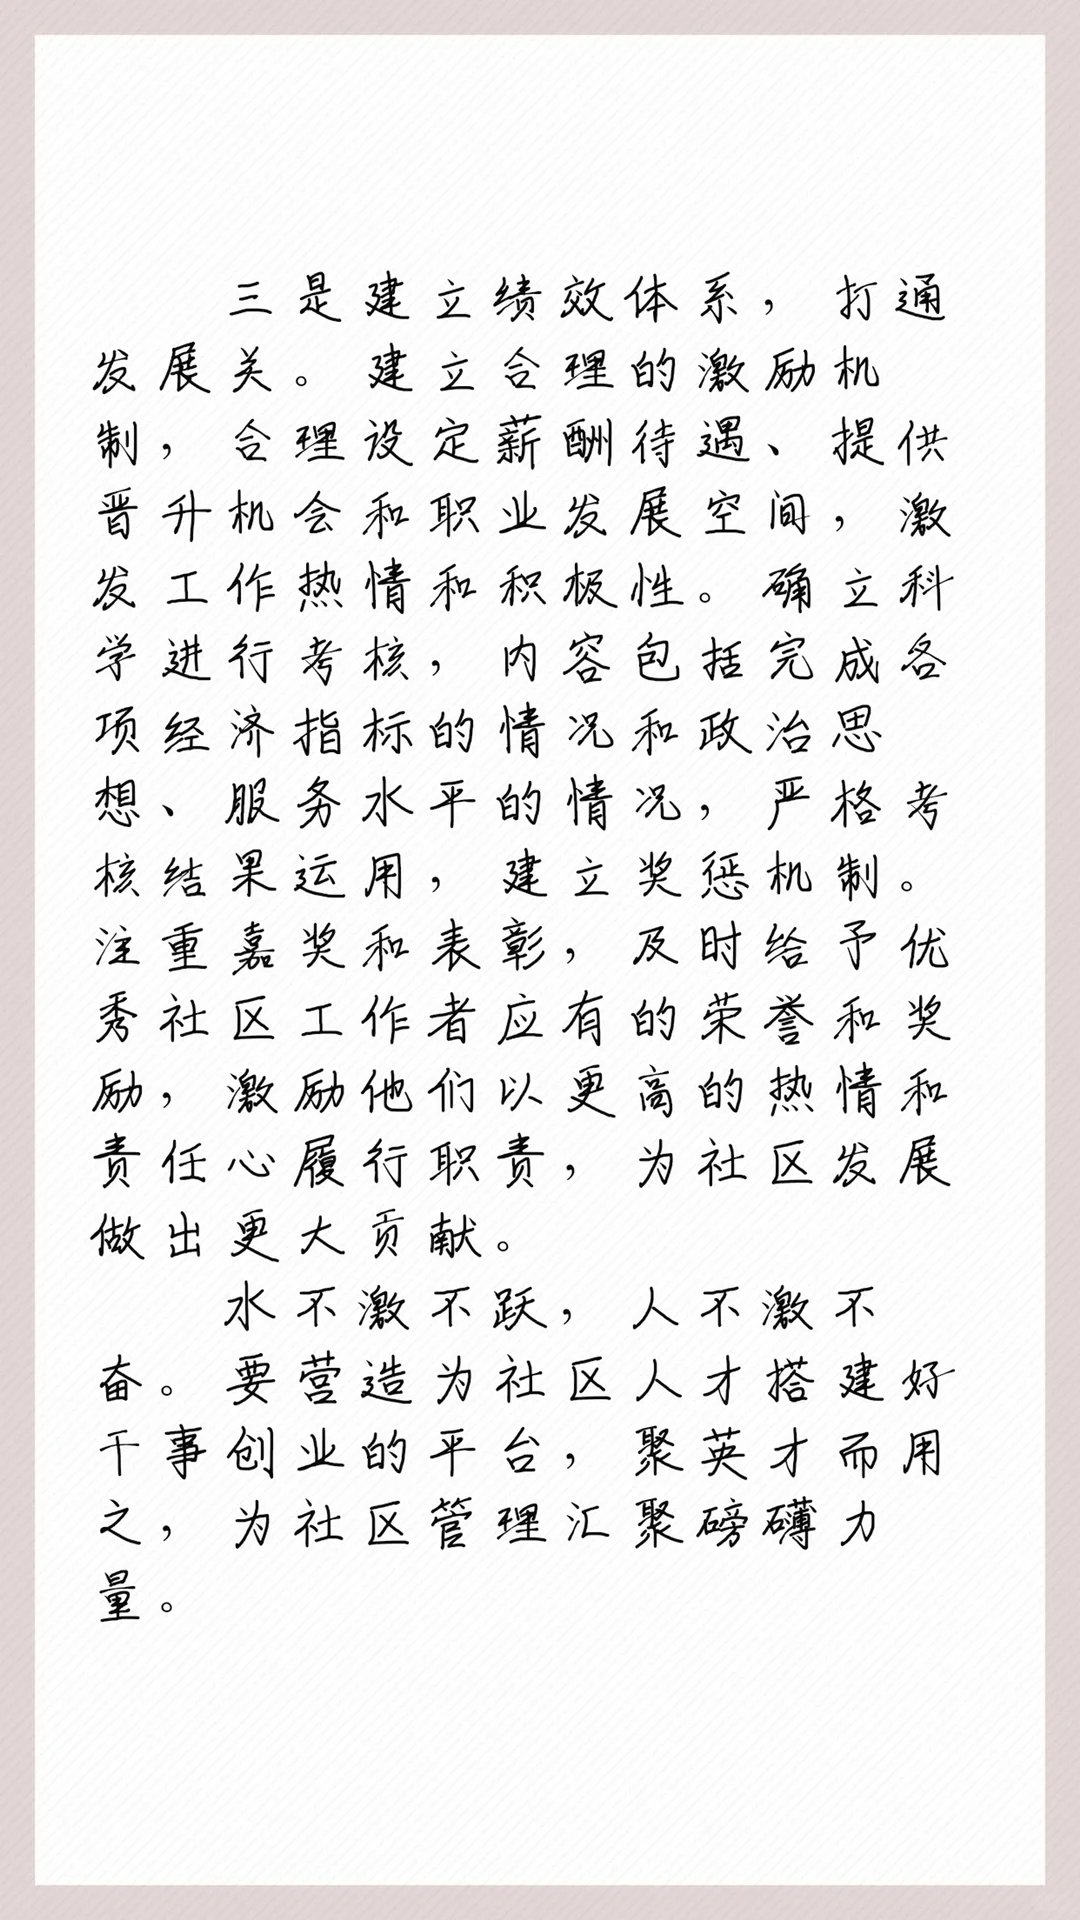 三是建立绩效体系，打通
发展关。建立合理的激励机
制，合理设定薪酬待遇、提供
晋升机会和职业发展空间，激
发工作热情和积极性。确立科
学进行考核，内容包括完成各
项经济指标的情况和政治思
想、服务水平的情况，严格考
核结果运用，建立奖惩机制。
注重嘉奖和表彰，及时给予优
秀社区工作者应有的荣誉和奖
励，激励他们以更高的热情和
责任心履行职责，为社区发展
做出更大贡献。
水不激不跃，人不激不
奋。要营造为社区人才搭建好
干事创业的平台，聚英才而用
之，为社区管理汇聚磅礴力
量。